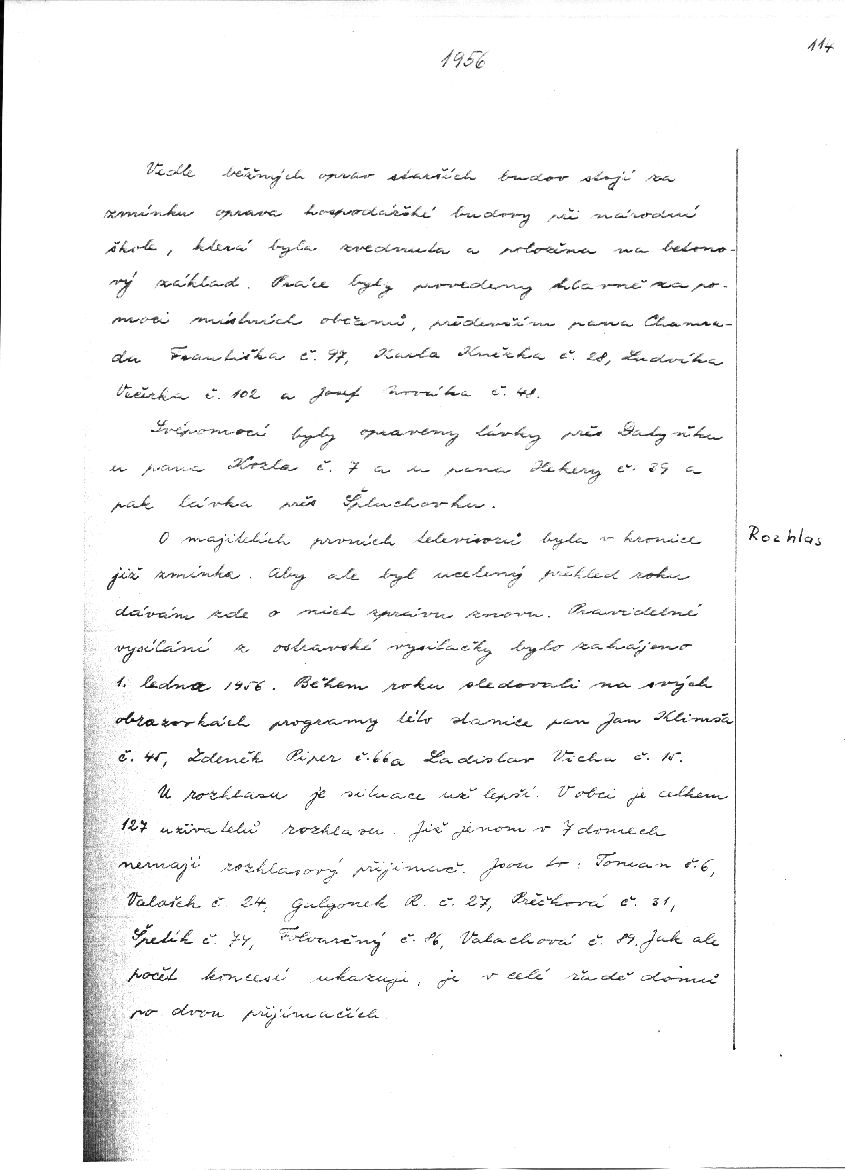 114
1956
Vedle běžných oprav starších budov stojí za
zmínku oprava hospodářské budovy při národní
škole, která byla zvednuta a položena na betono-
vý základ. Práce byly provedeny hlavně za po-
moci místních občanů, především pana Chamra-
du Františka č. 97, Karla Kněžka č. 28, Ludvíka
Večerka č. 102 a Josef Nováka č. 48.
Svépomocí byly opraveny lávky přes
u pana Kozla č. 7 a u pana Hekery č. 39 a
pak lávka přes Špluchovku.
O majitelích prvních televisorů byla v kronice
Rozhlas
již zmínka. Aby ale byl ucelený přehled roku
dávám zde o nich zprávu znovu. Pravidelné
vysílání z ostravské vysílačky bylo zahájeno
1. ledna 1956. Během roku sledovali na svých
obrazovkách programy této stanice pan Jan Klimša
č. 45, Zdeněk Piper č. 66 a Ladislav Vícha č. 15.
U rozhlasu je situace už lepší. V obci je celkem
127 uživatelů rozhlasu. Již jenom v 7 domech
nemají rozhlasový přijímač. Jsou to: Toman č. 6,
Valašek č. 24, Gulgonek R. č. 27, Préčková č. 31,
Špetík č. 74, Folvarčný č. 86, Valachová č. 89. Jak ale
počet koncesí ukazuje, je v celé řadě domů
po dvou přijímačích.